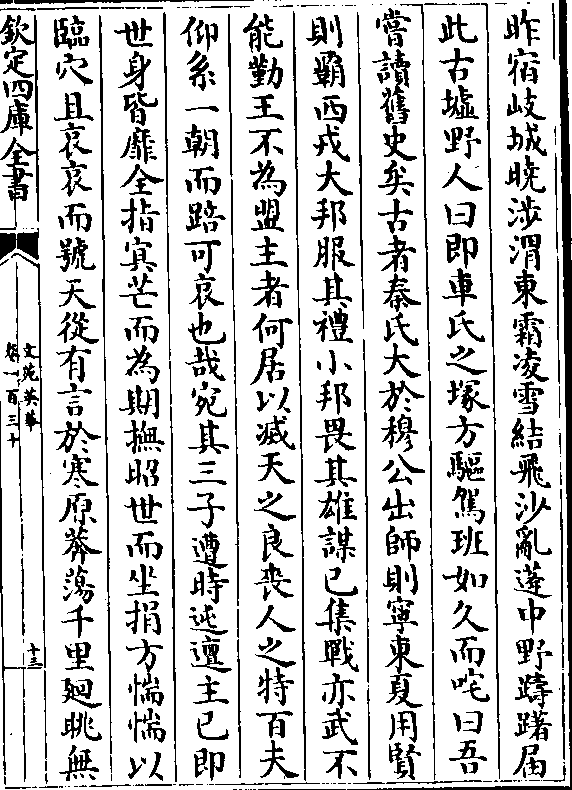 昨宿岐城曉涉渭東霜凌雪結飛沙亂蓬中野躊躇届
此古墟野人曰即車氏之塚方驅駕班如久而咤曰吾
嘗讀舊史矣古者秦氏大於穆公出師則寧東夏用賢
則霸西戎大邦服其禮小邦畏其雄謀已集戰亦武不
能勤王不為盟主者何居以滅天之良喪人之特百夫
仰系一朝而踣可哀也哉宛其三子遭時迍邅主已即
世身皆靡全指寘芒而為期撫昭世而坐捐方惴惴以
臨穴且哀哀而號天從有言於寒原莽蕩千里廻眺無
欽定四庫全書
文苑英華
卷一百三十
十三